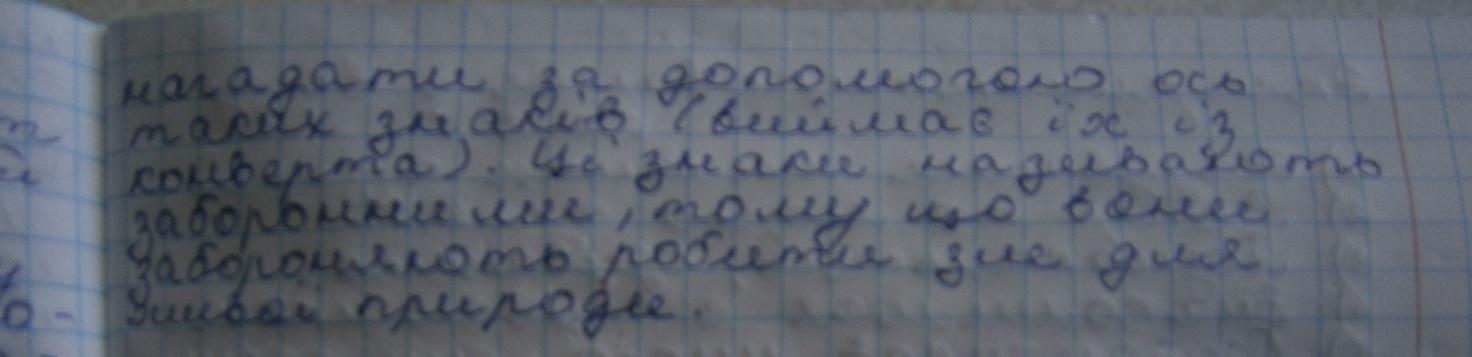 нагадати за допомогою ось
таких знаків (виймає їх із
конверта). Ці знаки називають
заборонними, тому що вони
забороняють робити зле для
живої природи.